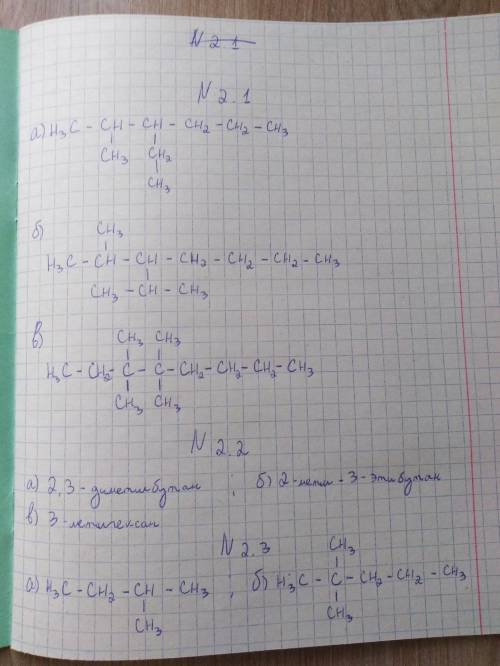 N 2.1
N 2.1
а) H₃C - CH - CH - CH₂ - CH₂ - CH₃
CH₃ CH₂
CH₃
б)
CH₃
H₃C - CH - CH - CH₂ - CH₂ - CH₂ - CH₃
CH₃ - CH - CH₃
в)
CH₃ CH₃
H₃C - CH₂ - C - C - CH₂ - CH₂ - CH₂ - CH₃
CH₃ CH₃
N 2.2
а) 2,3 - диметилбутан ; б) 2-метил - 3 - этилбутан
в) 3 - метилгексан
N 2.3
CH₃
а) H₃C - CH₂ - CH - CH₃ ; б) H₃C - C - CH₂ - CH₂ - CH₃
CH₃ CH₃